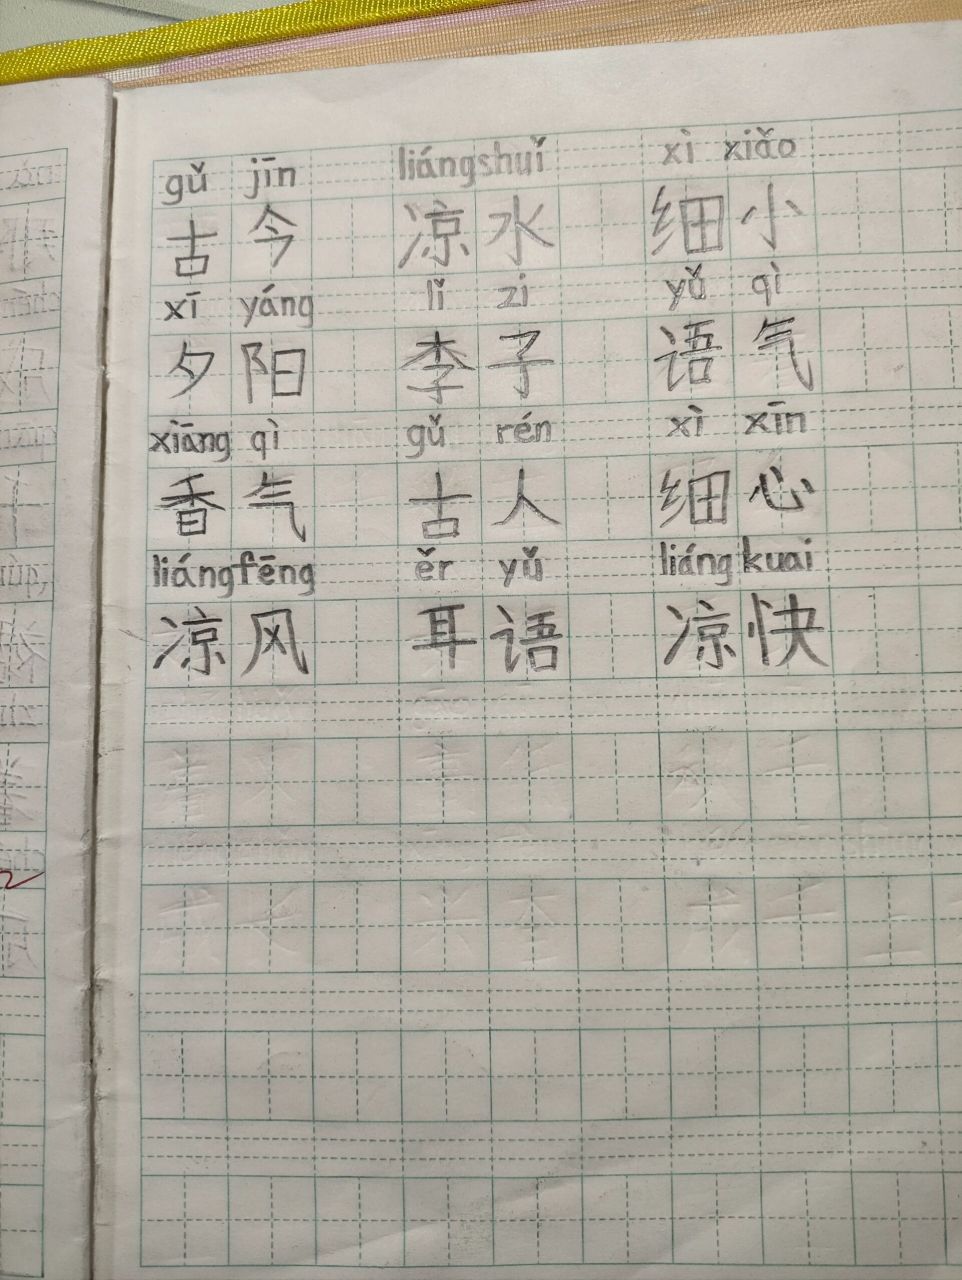 gǔ jīn liángshuǐ xì xiǎo
古今 凉水 细小
xī yáng lǐ zi yǔ qì
夕阳 李子 语气
xiāng qì gǔ rén xì xīn
香气 古人 细心
liángfēng ěr yǔ liángkuai
凉风 耳语 凉快